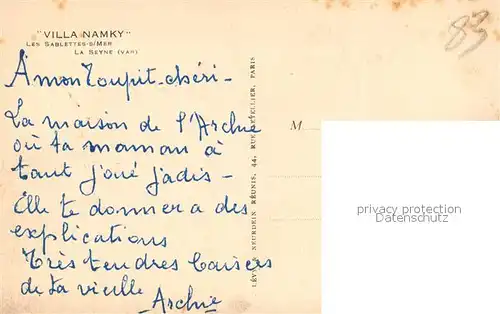 "VILLA NAMKY"
LES SABLETTES-S/MER
LA SEYNE (VAR)
83
À mon Toupit chéri -
La maison de l'Archie
où ta maman a
tant joué jadis -
Elle te donnera des
explications
Très tendres baisers
de ta vieille
Archie
LÉVY & NEURDEIN RÉUNIS, 44, RUE LETELLIER, PARIS
M
privacy protection
www.delcampe.net